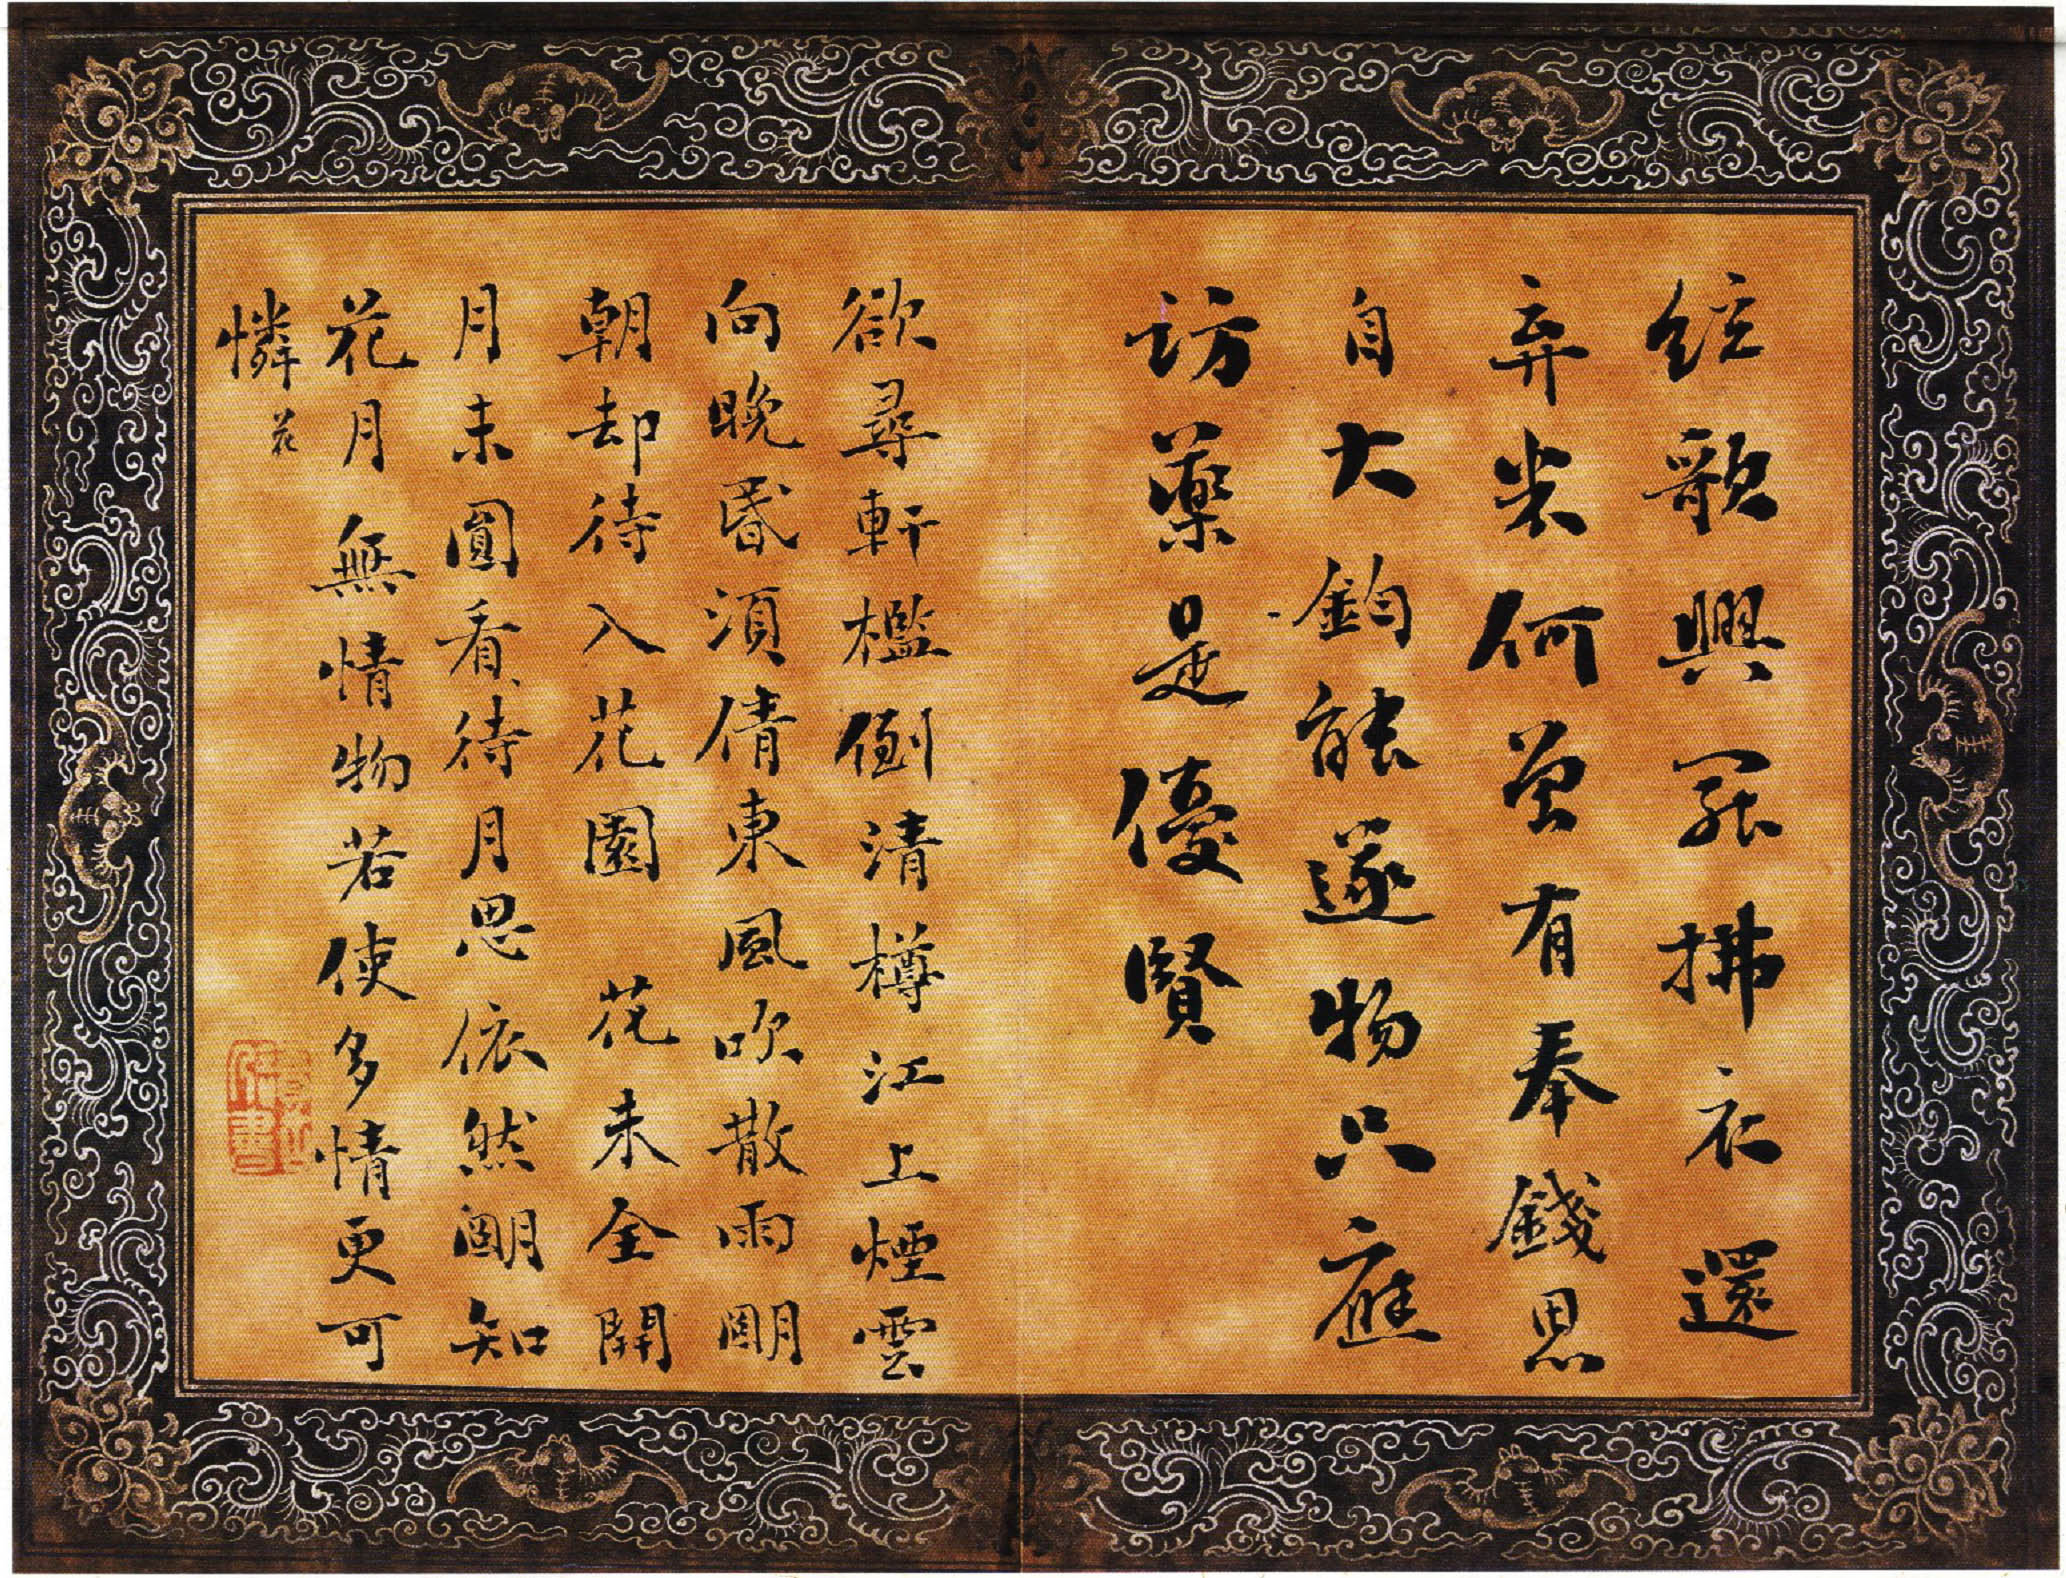 絃歌興罷拂衣還
弃米何曾有奉錢思
自大鈞能遂物只應
訪藥是優賢
欲尋軒檻倒清樽江上煙雲
向晚昏須倩東風吹散雨明
朝却待入花園 花未全開
月未圓看待月思依然明知
花月無情物若使多情更可
憐 花